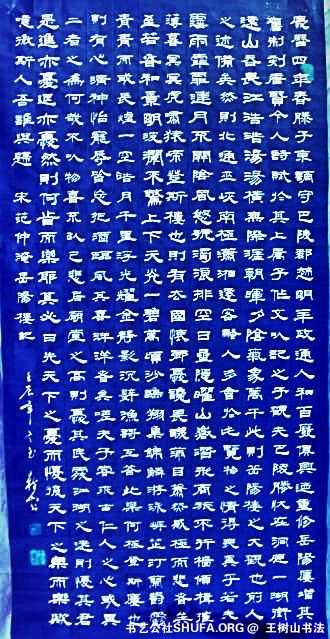 慶曆四年春滕子京謫守巴陵郡越明年政通人和百廢俱興迺重修岳陽樓增其
舊制刻唐賢今人詩賦於其上屬予作文以記之予觀夫巴陵勝狀在洞庭一湖銜
遠山吞長江浩浩湯湯橫無際涯朝暉夕陰氣象萬千此則岳陽樓之大觀也前人
之述備矣然則北通巫峽南極瀟湘遷客騷人多會於此覽物之情得無異乎若夫
霪雨霏霏連月不開陰風怒號濁浪排空日星隱曜山岳潛形商旅不行檣傾楫摧
薄暮冥冥虎嘯猿啼登斯樓也則有去國懷鄉憂讒畏譏滿目蕭然感極而悲者矣
至若春和景明波瀾不驚上下天光一碧萬頃沙鷗翔集錦鱗游泳岸芷汀蘭郁郁
青青而或長煙一空皓月千里浮光耀金靜影沉璧漁歌互答此樂何極登斯樓也
則有心曠神怡寵辱皆忘把酒臨風其喜洋洋者矣嗟夫予嘗求古仁人之心或異
二者之為何哉不以物喜不以己悲居廟堂之高則憂其民處江湖之遠則憂其君
是進亦憂退亦憂然則何時而樂耶其必曰先天下之憂而憂後天下之樂而樂歟
噫微斯人吾誰與歸 宋范仲淹岳陽樓記
书艺公社SHUFA.ORG @ 王树山书法